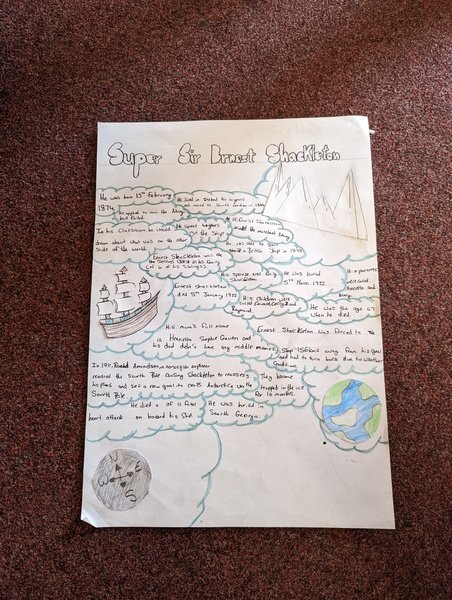 Super Sir Ernest Shackleton
He was born 15th February
1874
He lived in Ireland for 10 years
and moved to South London in 1884
He applied to join the Navy
but failed.
Sir Ernest Shackleton
joined the merchant Navy
In his classroom he would
dream about what was on the other
side of the world.
He spent 4 years
on the ship
He was able to
a British Ship in 1898
Ernest Shackleton was
the second oldest in his family
(of 10 of his siblings).
His spouse was Emily
Shackleton
He was buried
5th March 1922
His parents
were called
Henrietta and
Henry
Ernest Shackleton
died 5th January 1922
His children were
called Edward, Cecily and
Raymond
He was the age 47
when he died.
His mum's full name
is Henrietta Sophia Gavan and
his dad didn't have any middle names
Ernest Shackleton was forced to
stop 156kms away from his goal
and had to turn back due to weather
conditions
In 1911, Roald Amundsen, a norwegian explorer
reached the South Pole causing Shackleton to reassess
his plans and set a new goal to cross Antarctica via the
South Pole
They became
trapped in the ice
for 10 months.
He died of a fatal
heart attack on board his ship
He was buried in
South Georgia.
N
W E
S